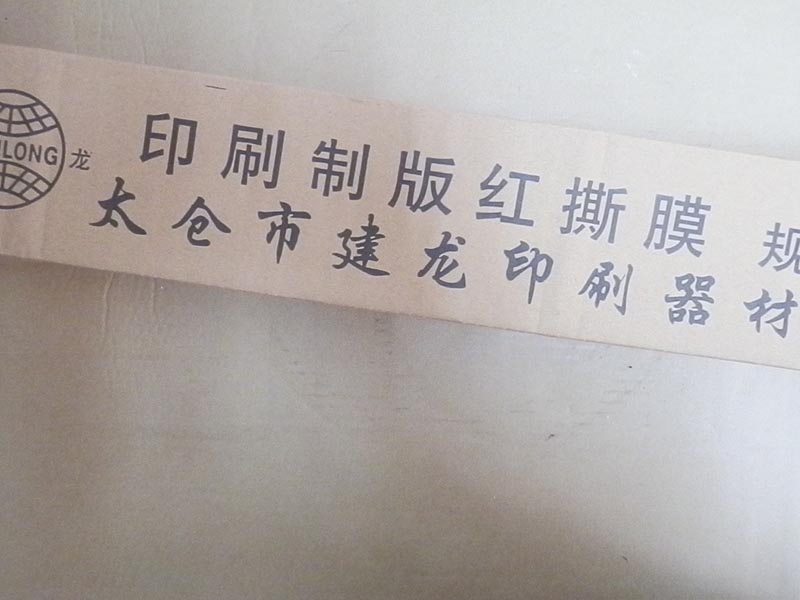 ILONG 龙
印刷制版红撕膜 规
太仓市建龙印刷器材